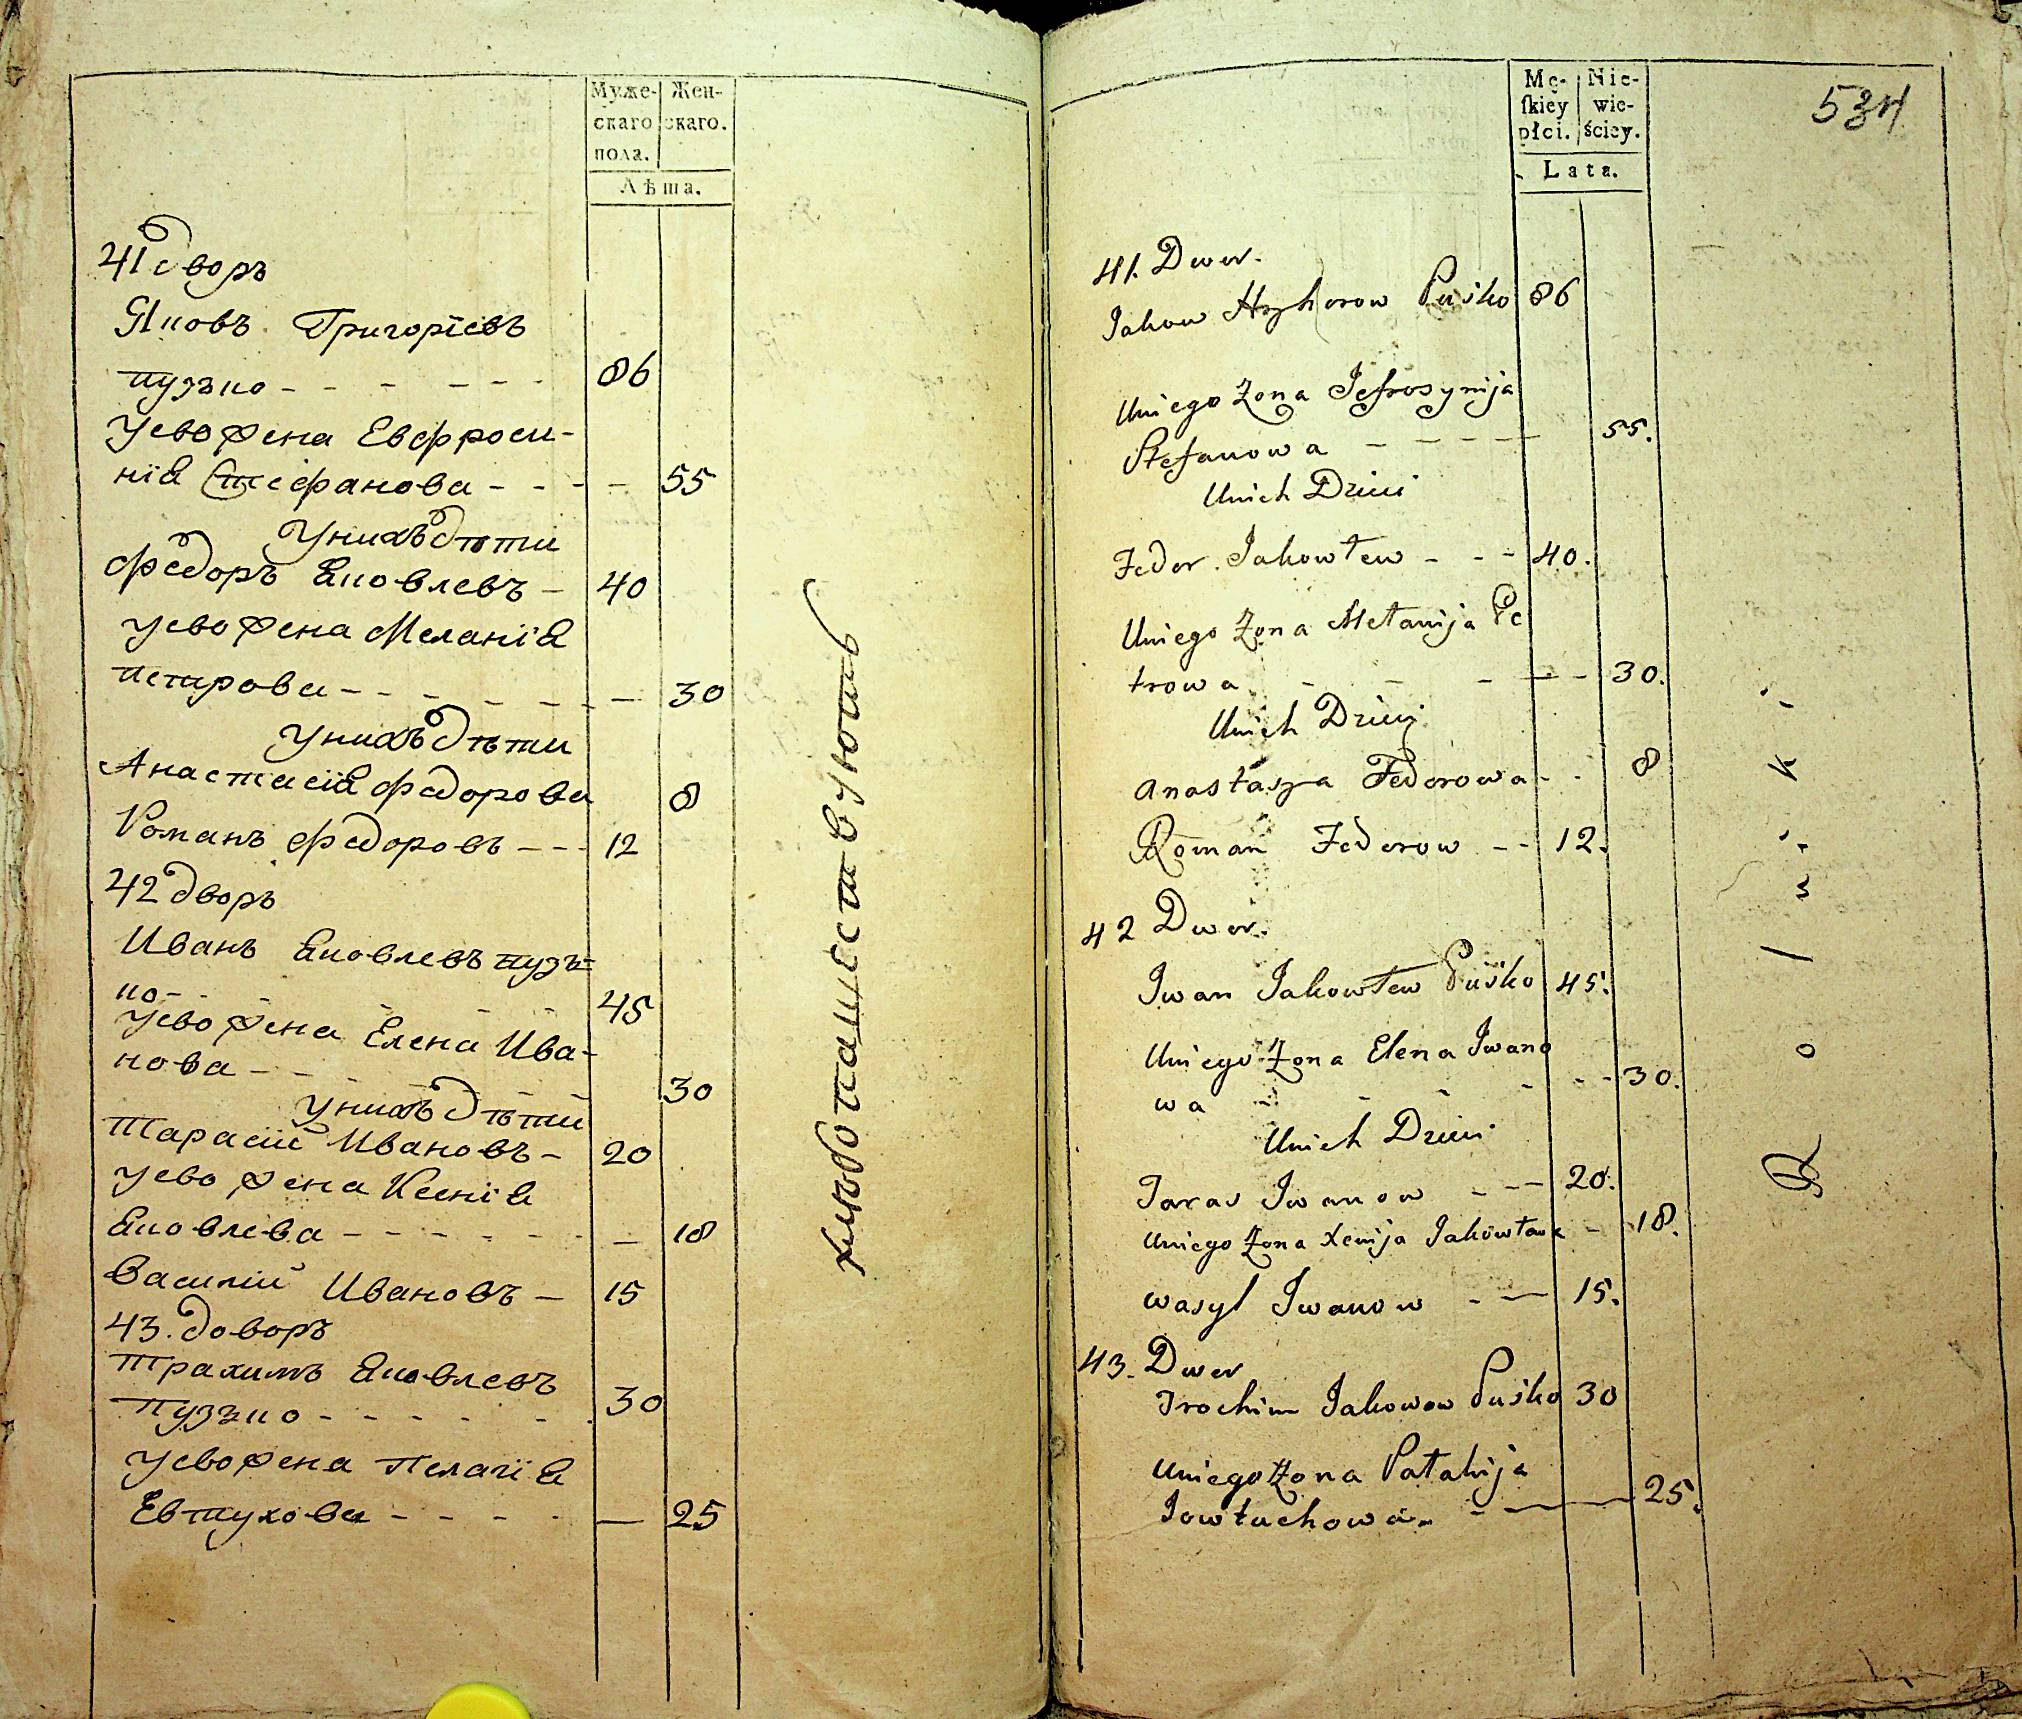 Муже- Жен-
скаго скаго.
пола.
Лѣта.
41 дворъ
Яковъ Григорїевъ
пузько - - - - - - 86
Уево жена Евфроси-
нїя Стефанова - - - - 55
Унихъ дѣти
Федоръ Яковлевъ - 40
Уево жена Меланїя
петрова - - - - - - - 30
Унихъ дѣти
Анастасїя Федорова 8
Романъ Федоровъ - - - 12
42 дворъ
Иванъ Яковлевъ пузь=
ко - - - - - 45
Уево жена Елена Ива-
нова - - - 30
Унихъ дѣти
Тарасїй Ивановъ - 20
Уево жена Ксенїя
Яковлева - - - - - - - 18
Василїй Ивановъ - 15
43. доворъ
Трахимъ Яковлевъ
Пузько - - - - - - 30
Уево жена Пелагїя
Евтухова - - - - - 25
хлѣбопашествуютъ
534
Mę- Nie-
skiey wie-
płci. ściey.
Lata.
41. Dwor.
Jakow Hryhorow Puśko 86
Uniego Żona Jefrosynija
Stefanowa - - - - - 55.
Unich Dzieci
Fedor Jakowłew - - - 40.
Uniego Żona Mełanija Pe
trowa - - - - - 30.
Unich Dzieci
Anastazya Fedorowa - - 8
Roman Fedorow - - 12.
42 Dwor.
Jwan Jakowłew Puśko 45.
Uniego Żona Elena Jwano
wa - - - - - 30.
Unich Dzieci
Taras Jwanow - - - 20.
Uniego Żona Xenija Jakowława - 18.
Wasyl Jwanow - - 15.
43. Dwor
Trochim Jakowow Puśko 30
Uniego Żona Pałahija
Jowtuchowa - - - 25.
Rolniki